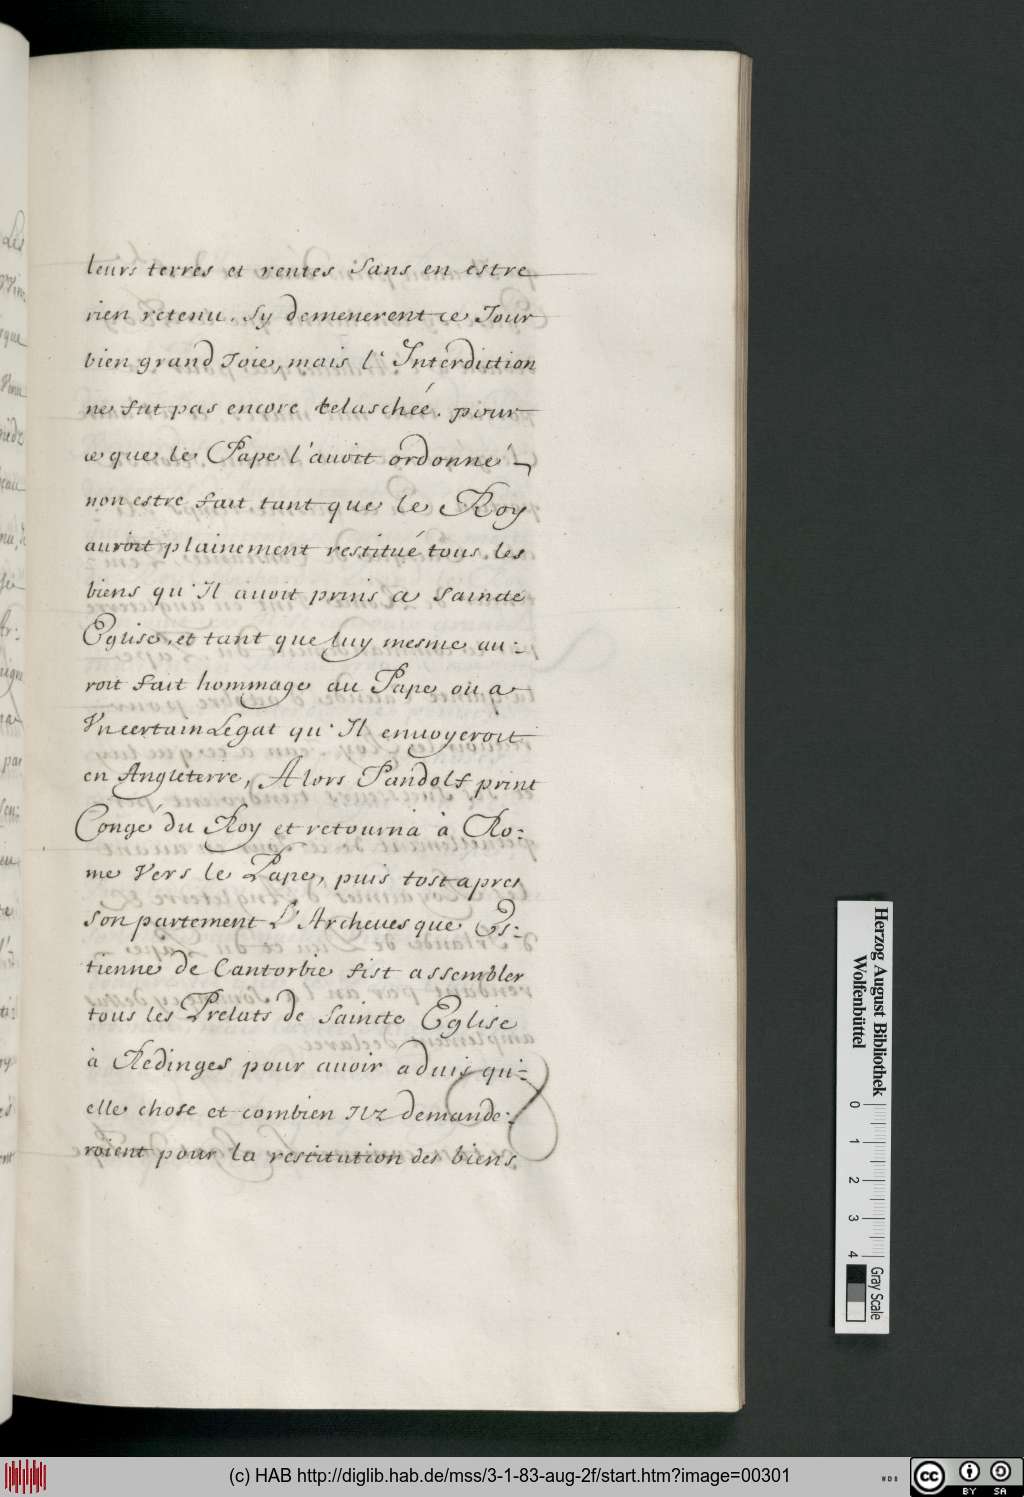 leurs terres et rentes sans en estre
rien retenu. Sy demenerent ce Jour
bien grand Joie, mais l'Interdiction
ne fut pas encore relaschée. pour
ce que le Pape l'auoit ordonné
non estre fait tant que le Roy
auroit plainement restitué tous les
biens qu'Il auoit prins a saincte
Eglise, et tant que luy mesme au:
roit fait hommage au Pape ou a
Vn certain Legat qu'Il enuoyeroit
en Angleterre, Alors Pandolf print
Congé du Roy et retourna à Ro:
me Vers le Pape, puis tost apres
son partement L'Archeuesque Es:
tienne de Cantorbie fist assembler
tous les Prelats de saincte Eglise
à Redinges pour auoir aduis qu:
elle chose et combien Ilz demande:
roient pour la restitution des biens
Herzog August Bibliothek
Wolfenbüttel
0 1 2 3 4
Gray Scale
(c) HAB http://diglib.hab.de/mss/3-1-83-aug-2f/start.htm?image=00301
WDB
cc BY SA